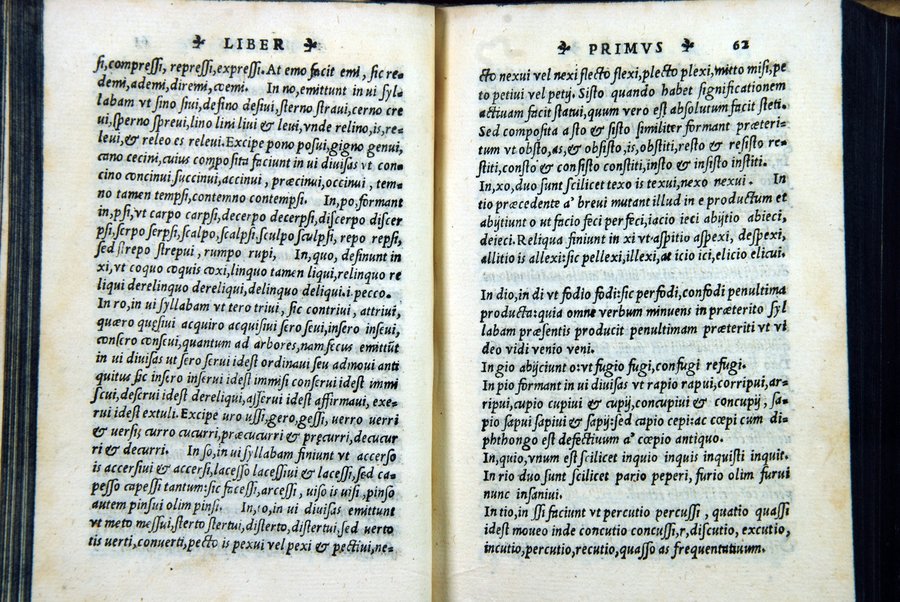 LIBER
si,compressi, repressi, expressi. At emo facit emi, sic re-
demi, ademi, diremi, coemi. In no, emittunt in ui syl-
labam vt sino siui, desino desiui, sterno straui, cerno cre
ui, sperno spreui, lino lini liui & leui, vnde relino, is, re-
leui, & releo es releui. Excipe pono posui, gigno genui,
cano cecini, cuius composita faciunt in ui diuisas vt con-
cino concinui succinui, accinui, præcinui, occinui, tem-
no tamen tempsi, contemno contempsi. In, po, formant
in, psi, vt carpo carpsi, decerpo decerpsi, discerpo discer
psi, serpo serpsi, scalpo, scalpsi, sculpo sculpsi, repo repsi,
sed strepo strepui, rumpo rupi, In, quo, desinunt in
xi, vt coquo coquis coxi, linquo tamen liqui, relinquo re
liqui derelinquo dereliqui, delinquo deliqui .i pecco.
In ro, in ui syllabam vt tero triui, sic contriui, attriui,
quæro quesiui acquiro acquisiui sero seui, insero inseui,
consero conseui, quantum ad arbores, nam secus emittūt
in ui diuisas ut sero serui idest ordinaui seu admoui anti
quitus sic insero inserui idest immisi conserui idest immi
scui, deserui idest dereliqui, asserui idest affirmaui, exe-
rui idest extuli. Excipe uro ussi, gero, gessi, uerro uerri
& uersi, curro cucurri, præcucurri & pręcurri, decucur
ri & decurri. In so, in ui syllabam finiunt vt accerso
is accersiui & accersi, lacesso lacessiui & lacessi, sed ca-
pesso capessi tantum: sic facessi, arcessi, uiso is uisi, pinso
autem pinsui olim pinsi. In, to, in ui diuisas emittunt
vt meto messui, sterto stertui, disterto, distertui, sed uerto
tis uerti, conuerti, pecto is pexui vel pexi & pectiui, ne-
PRIMVS 62
cto nexui vel nexi flecto flexi, plecto plexi, mitto misi, pe
to petiui vel petij. Sisto quando habet significationem
actiuam facit statui, quum vero est absolutum facit steti.
Sed composita a sto & sisto similiter formant præteri-
tum vt obsto, as, & obsisto, is, obstiti, resto & resisto re-
stiti, consto & consisto constiti, insto & insisto institi.
In, xo, duo sunt scilicet texo is texui, nexo nexui. In
tio præcedente a' breui mutant illud in e productum et
abijtiunt o ut facio feci perfeci, iacio ieci abijtio abieci,
deieci. Reliqua finiunt in xi vt aspitio aspexi, despexi,
allitio is allexi: sic pellexi, illexi, at icio ici, elicio elicui.
In dio, in di vt fodio fodi: sic perfodi, confodi penultima
producta: quia omne verbum minuens in præterito syl
labam præsentis producit penultimam præteriti vt vi
deo vidi venio veni.
In gio abijciunt o: vt fugio fugi, confugi refugi.
In pio formant in ui diuisas vt rapio rapui, corripui, ar-
ripui, cupio cupiui & cupij, concupiui & concupij, sa-
pio sapui sapiui & sapij: sed capio cepi: ac cœpi cum di-
phthongo est defectiuum a' cœpio antiquo.
In, quio, vnum est scilicet inquio inquis inquisti inquit.
In rio duo sunt scilicet pario peperi, furio olim furui
nunc insaniui.
In tio, in ssi faciunt vt percutio percussi, quatio quassi
idest moueo inde concutio concussi, r, discutio, excutio,
incutio, percutio, recutio, quasso as frequentatiuum.